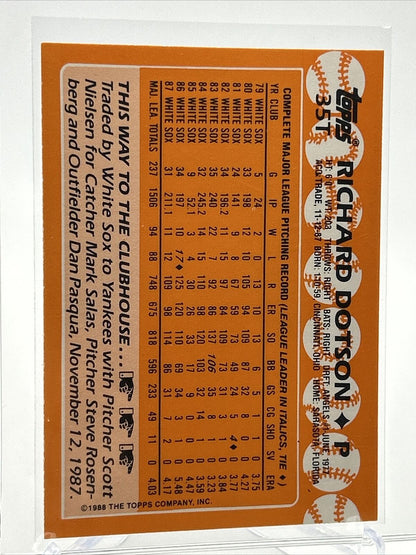 topps®
35T
RICHARD DOTSON ♦ P
HT: 6'0" WT: 203 THROWS: RIGHT BATS: RIGHT DRAFT: ANGELS #1-JUNE, 1977
ACQ: TRADE, 11-12-87 BORN: 1-10-59, CINCINNATI, OHIO HOME: SARASOTA, FLORIDA
COMPLETE MAJOR LEAGUE PITCHING RECORD (LEAGUE LEADER IN ITALICS, TIE ♦)
YR CLUB G IP W L R ER SO BB GS CG SHO SV ERA
79 WHITE SOX 5 24 2 0 13 10 13 6 5 1 1 0 3.75
80 WHITE SOX 33 198 12 10 105 94 109 87 32 8 0 0 4.27
81 WHITE SOX 24 141 9 8 67 59 73 49 24 5 4♦ 0 3.77
82 WHITE SOX 34 196.2 11 15 97 84 109 73 31 3 1 0 3.84
83 WHITE SOX 35 240 22 7 92 86 137 106 35 8 1 0 3.23
84 WHITE SOX 32 245.2 14 15 110 98 120 103 32 14 1 0 3.59
85 WHITE SOX 9 52.1 3 4 30 26 33 17 9 0 0 0 4.47
86 WHITE SOX 34 197 10 17♦ 125 120 110 69 34 3 1 0 5.48
87 WHITE SOX 31 211.1 11 12 109 98 114 86 31 7 2 0 4.17
MAJ LEA TOTALS 237 1506 94 88 748 675 818 596 233 49 11 0 4.03
THIS WAY TO THE CLUBHOUSE...
Traded by White Sox to Yankees with Pitcher Scott
Nielsen for Catcher Mark Salas, Pitcher Steve Rosen-
berg and Outfielder Dan Pasqua, November 12, 1987.
©1988 THE TOPPS COMPANY, INC.